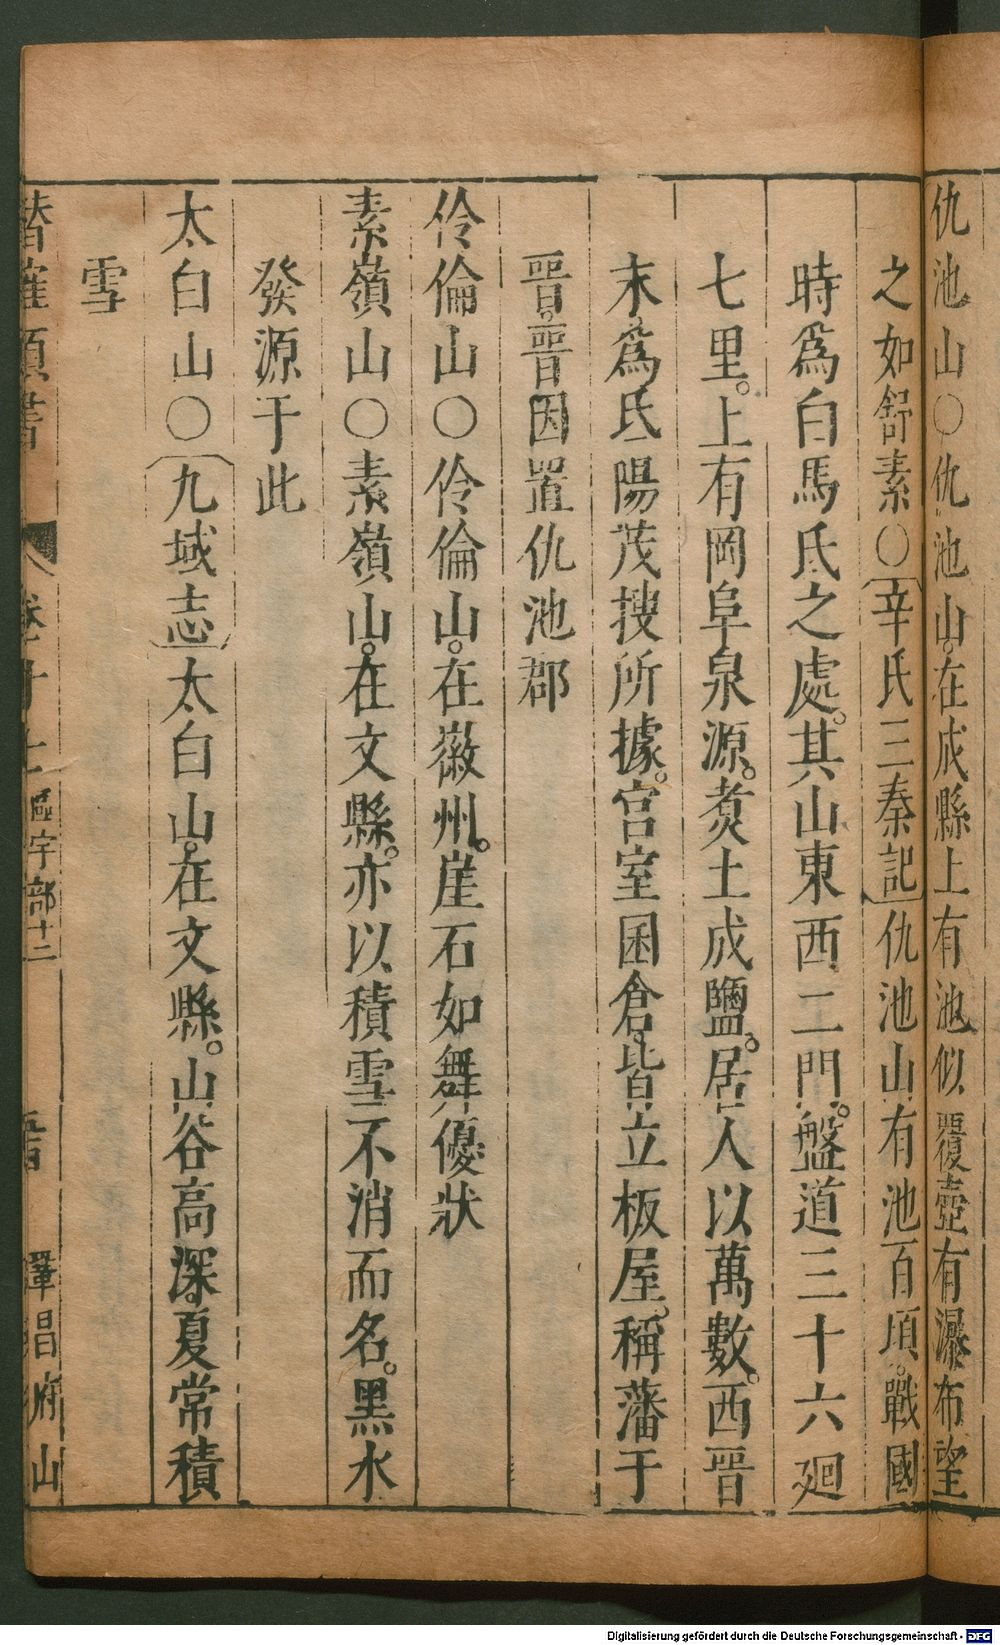 仇池山○仇池山。在成縣上有池似覆壺有瀑布望
之如舒素○辛氏三秦記仇池山有池百頃。戰國
時爲白馬氐之處。其山東西二門。盤道三十六廻
七里。上有岡阜泉源。煑土成鹽。居人以萬數。西晉
末爲氐陽茂搜所據。宮室囷倉。皆立板屋。稱藩于
晋。晋因置仇池郡
伶倫山○伶倫山。在徽州。崖石如舞優狀
素嶺山○素嶺山。在文縣。亦以積雪不消而名。黑水
發源于此
太白山○九域志太白山。在文縣。山谷高深。夏常積
雪
潛確類書 卷十七 區宇部十二 晋 鞏昌府山
Digitalisierung gefördert durch die Deutsche Forschungsgemeinschaft - DFG